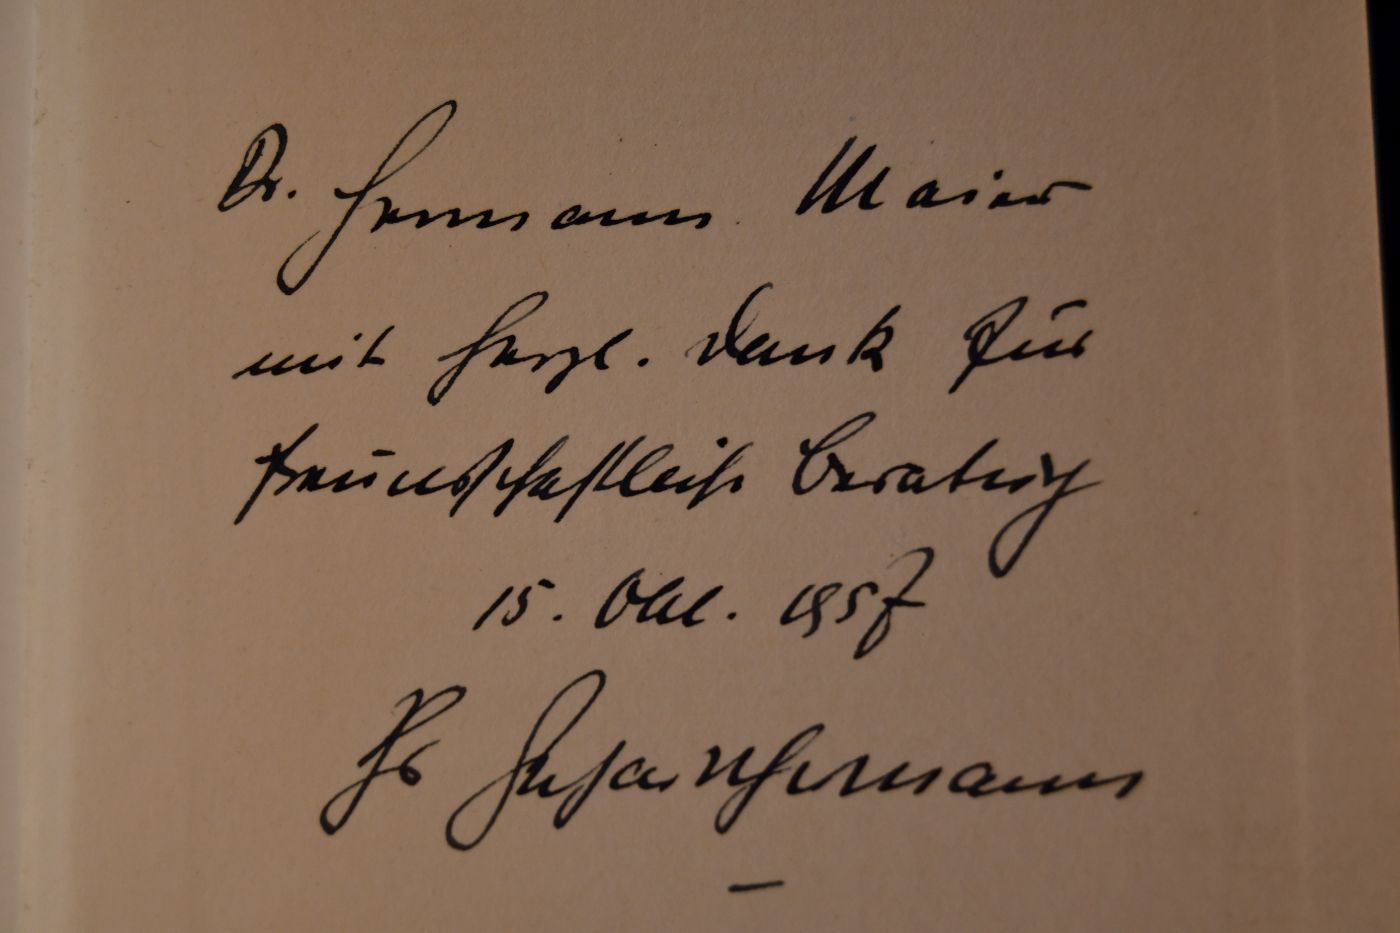 Dr. Hermann Maier
mit herzl. Dank für
freundschaftliche Beratung
15. Okt. 1957